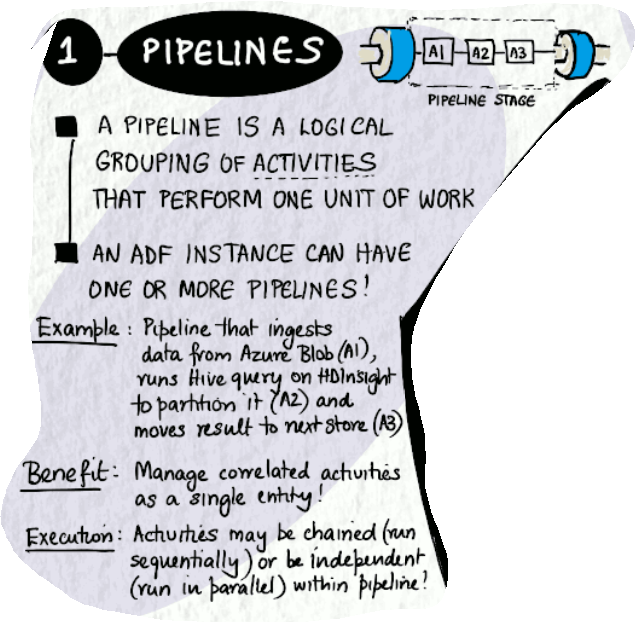 1 PIPELINES
A1 A2 A3
PIPELINE STAGE
A PIPELINE IS A LOGICAL
GROUPING OF ACTIVITIES
THAT PERFORM ONE UNIT OF WORK
AN ADF INSTANCE CAN HAVE
ONE OR MORE PIPELINES!
Example: Pipeline that ingests
data from Azure Blob (A1),
runs Hive query on HDInsight
to partition it (A2) and
moves result to next store (A3)
Benefit: Manage correlated activities
as a single entity!
Execution: Activities may be chained (run
sequentially) or be independent
(run in parallel) within pipeline!